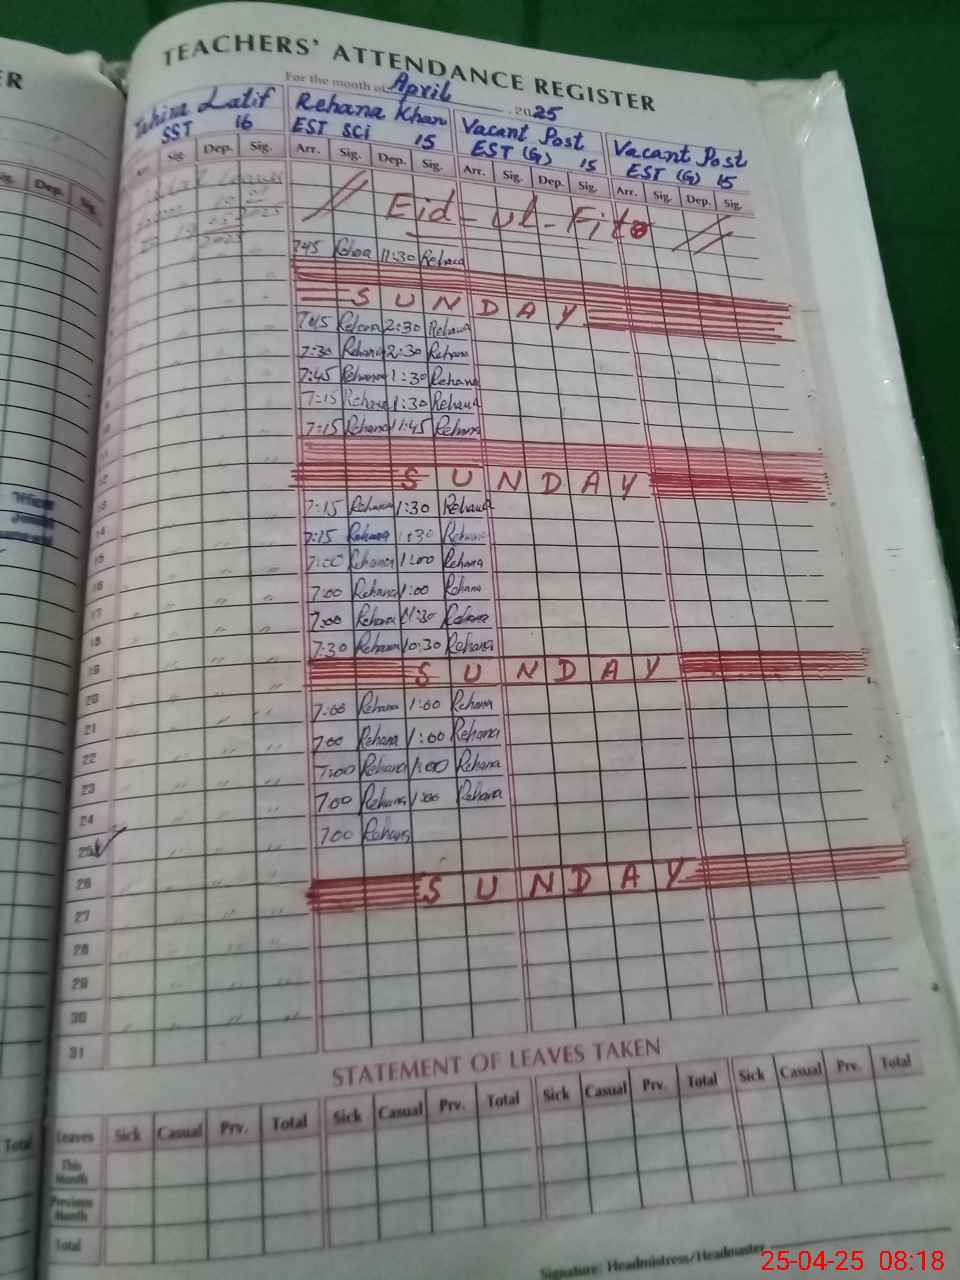 TEACHERS' ATTENDANCE REGISTER
For the month of April, 2025
ER
Latif
SST 16
Rehana Khan
EST SCi 15
Vacant Post
EST (G) 15
Vacant Post
EST (G) 15
Sig. Dep. Sig. Arr. Sig. Dep. Sig. Arr. Sig. Dep. Sig. Arr. Sig. Dep. Sig.
// Eid-ul-Fitr //
2025
2025
745 11:30 Rehana
SUNDAY
7:45 Rehana 2:30 Rehana
7:30 Rehana 2:30 Rehana
7:45 Rehana 1:30 Rehana
7:15 Rehana 1:30 Rehana
7:15 Rehana 11:45 Rehana
11
12 SUNDAY
13 7:15 Rehana 1:30 Rehana
14 7:15 Rehana 1:30 Rehana
15 7:00 Rehana 1:00 Rehana
16 7:00 Rehana 1:00 Rehana
17 7:00 Rehana 11:30 Rehana
18 7:30 Rehana 10:30 Rehana
19 SUNDAY
20 7:00 Rehana 1:00 Rehana
21 700 Rehana 1:00 Rehana
22 7:00 Rehana 1:00 Rehana
23 700 Rehana 1:00 Rehana
24 700 Rehana
25
26 SUNDAY
27
28
29
30
31
STATEMENT OF LEAVES TAKEN
Total Leaves Sick Casual Prv. Total Sick Casual Prv. Total Sick Casual Prv. Total Sick Casual Prv. Total
This Month
Previous Month
Total
Signature: Headmistress/Headmaster
25-04-25 08:18